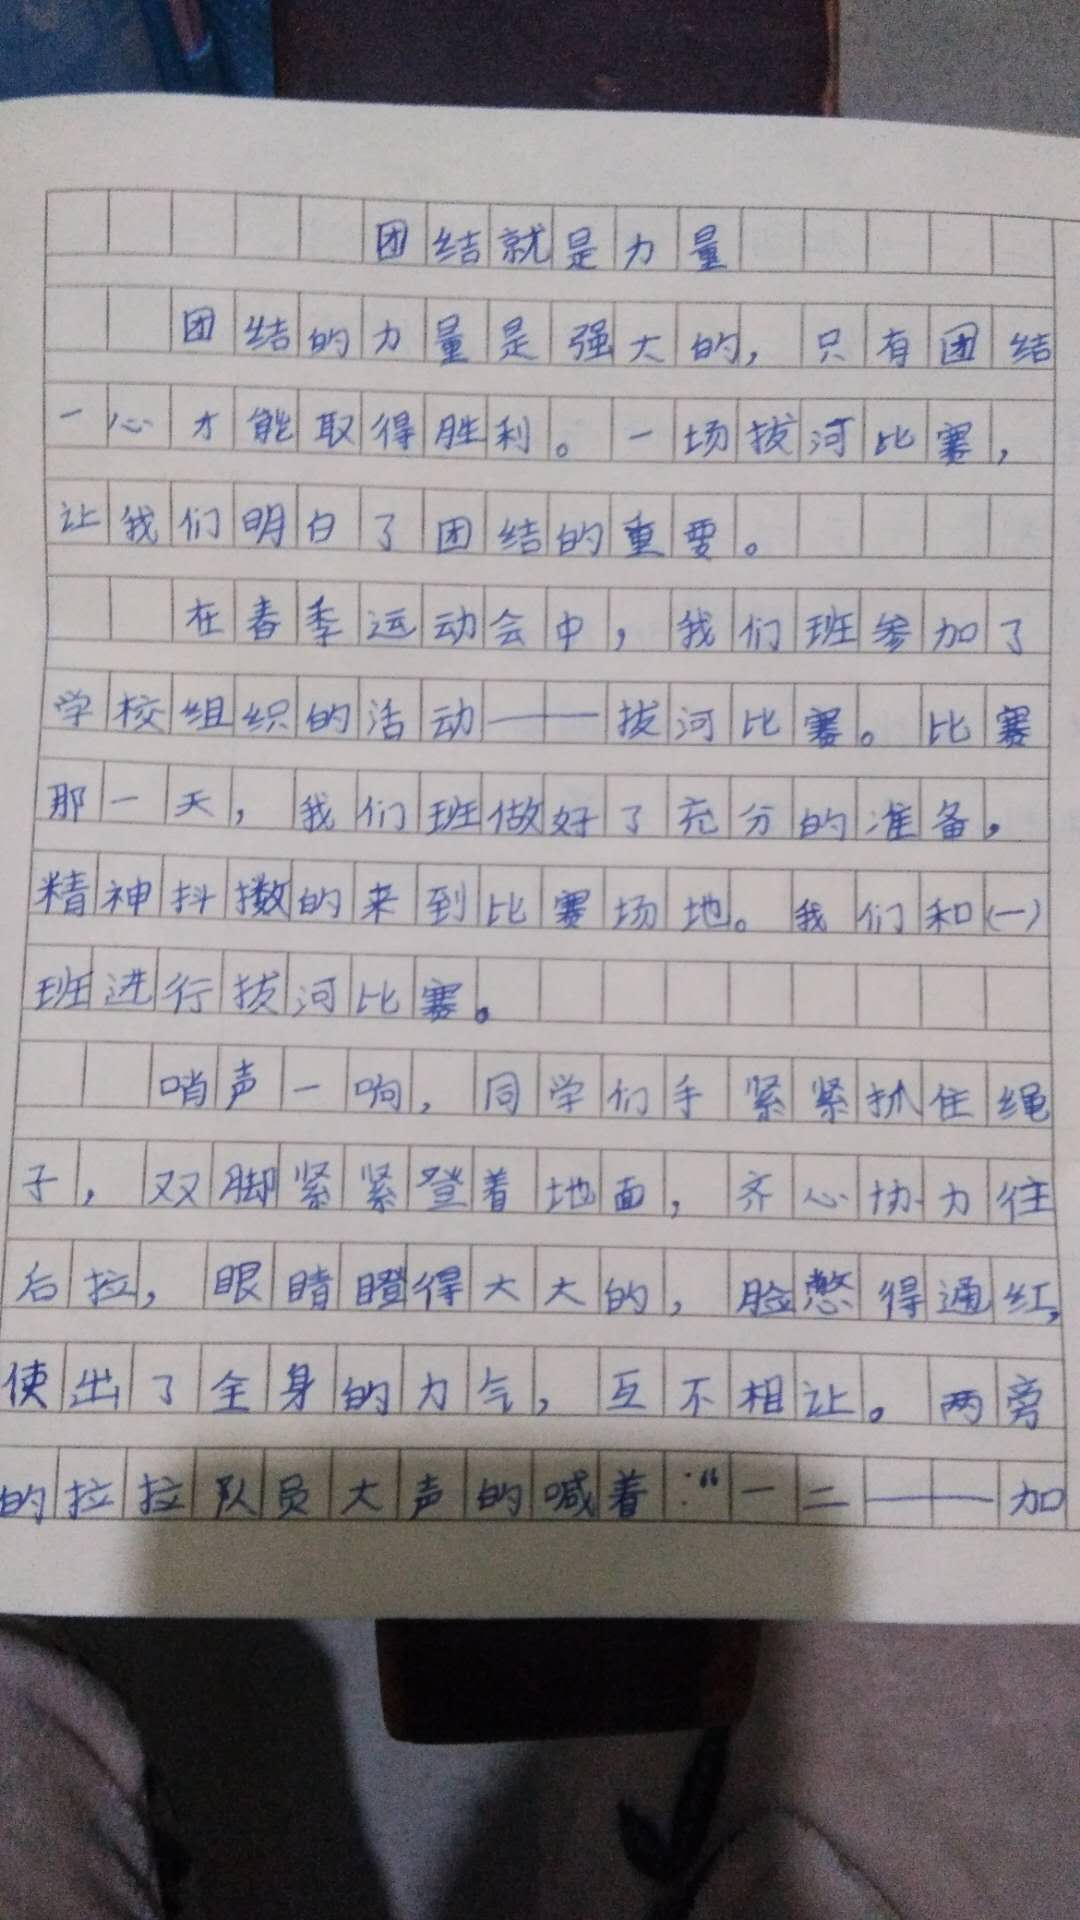 团结就是力量
团结的力量是强大的，只有团结
一心才能取得胜利。一场拔河比赛，
让我们明白了团结的重要。
在春季运动会中，我们班参加了
学校组织的活动——拔河比赛。比赛
那一天，我们班做好了充分的准备，
精神抖擞的来到比赛场地。我们和(一)
班进行拔河比赛。
哨声一响，同学们手紧紧抓住绳
子，双脚紧紧登着地面，齐心协力往
后拉，眼睛瞪得大大的，脸憋得通红，
使出了全身的力气，互不相让。两旁
的拉拉队员大声的喊着：“一二——加